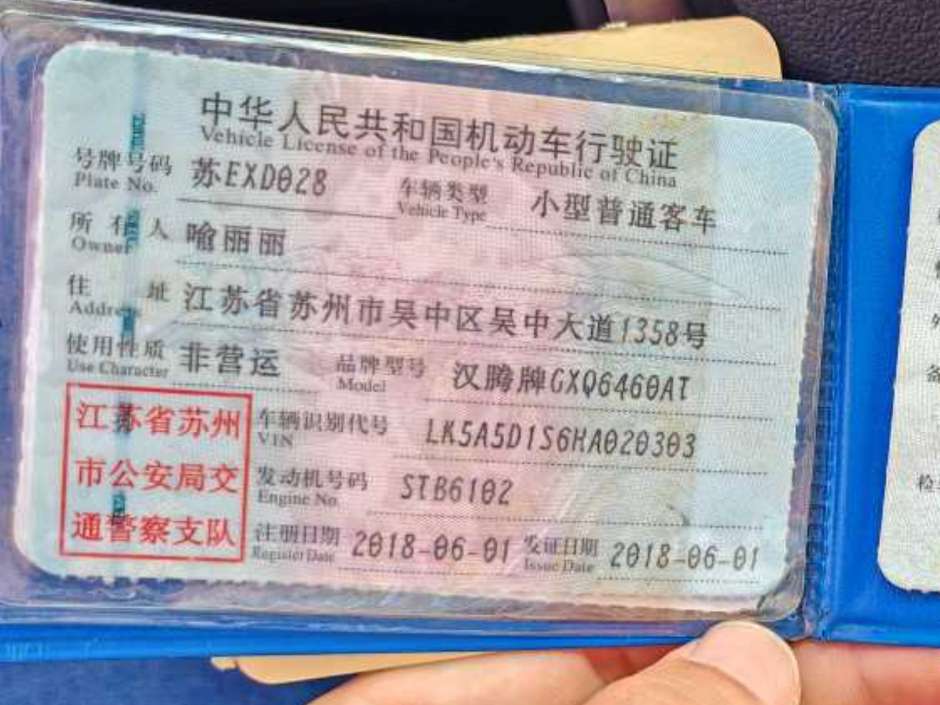 中华人民共和国机动车行驶证
Vehicle License of the People's Republic of China
号牌号码 苏EXD028 车辆类型 小型普通客车
Plate No. Vehicle Type
所有人 喻丽丽
Owner
住址 江苏省苏州市吴中区吴中大道1358号
Address
使用性质 非营运 品牌型号 汉腾牌GXQ6460AT
Use Character Model
江苏省苏州
市公安局交
通警察支队
车辆识别代号 LK5A5D1S6HA020303
VIN
发动机号码 STB6102
Engine No.
注册日期 2018-06-01 发证日期 2018-06-01
Register Date Issue Date